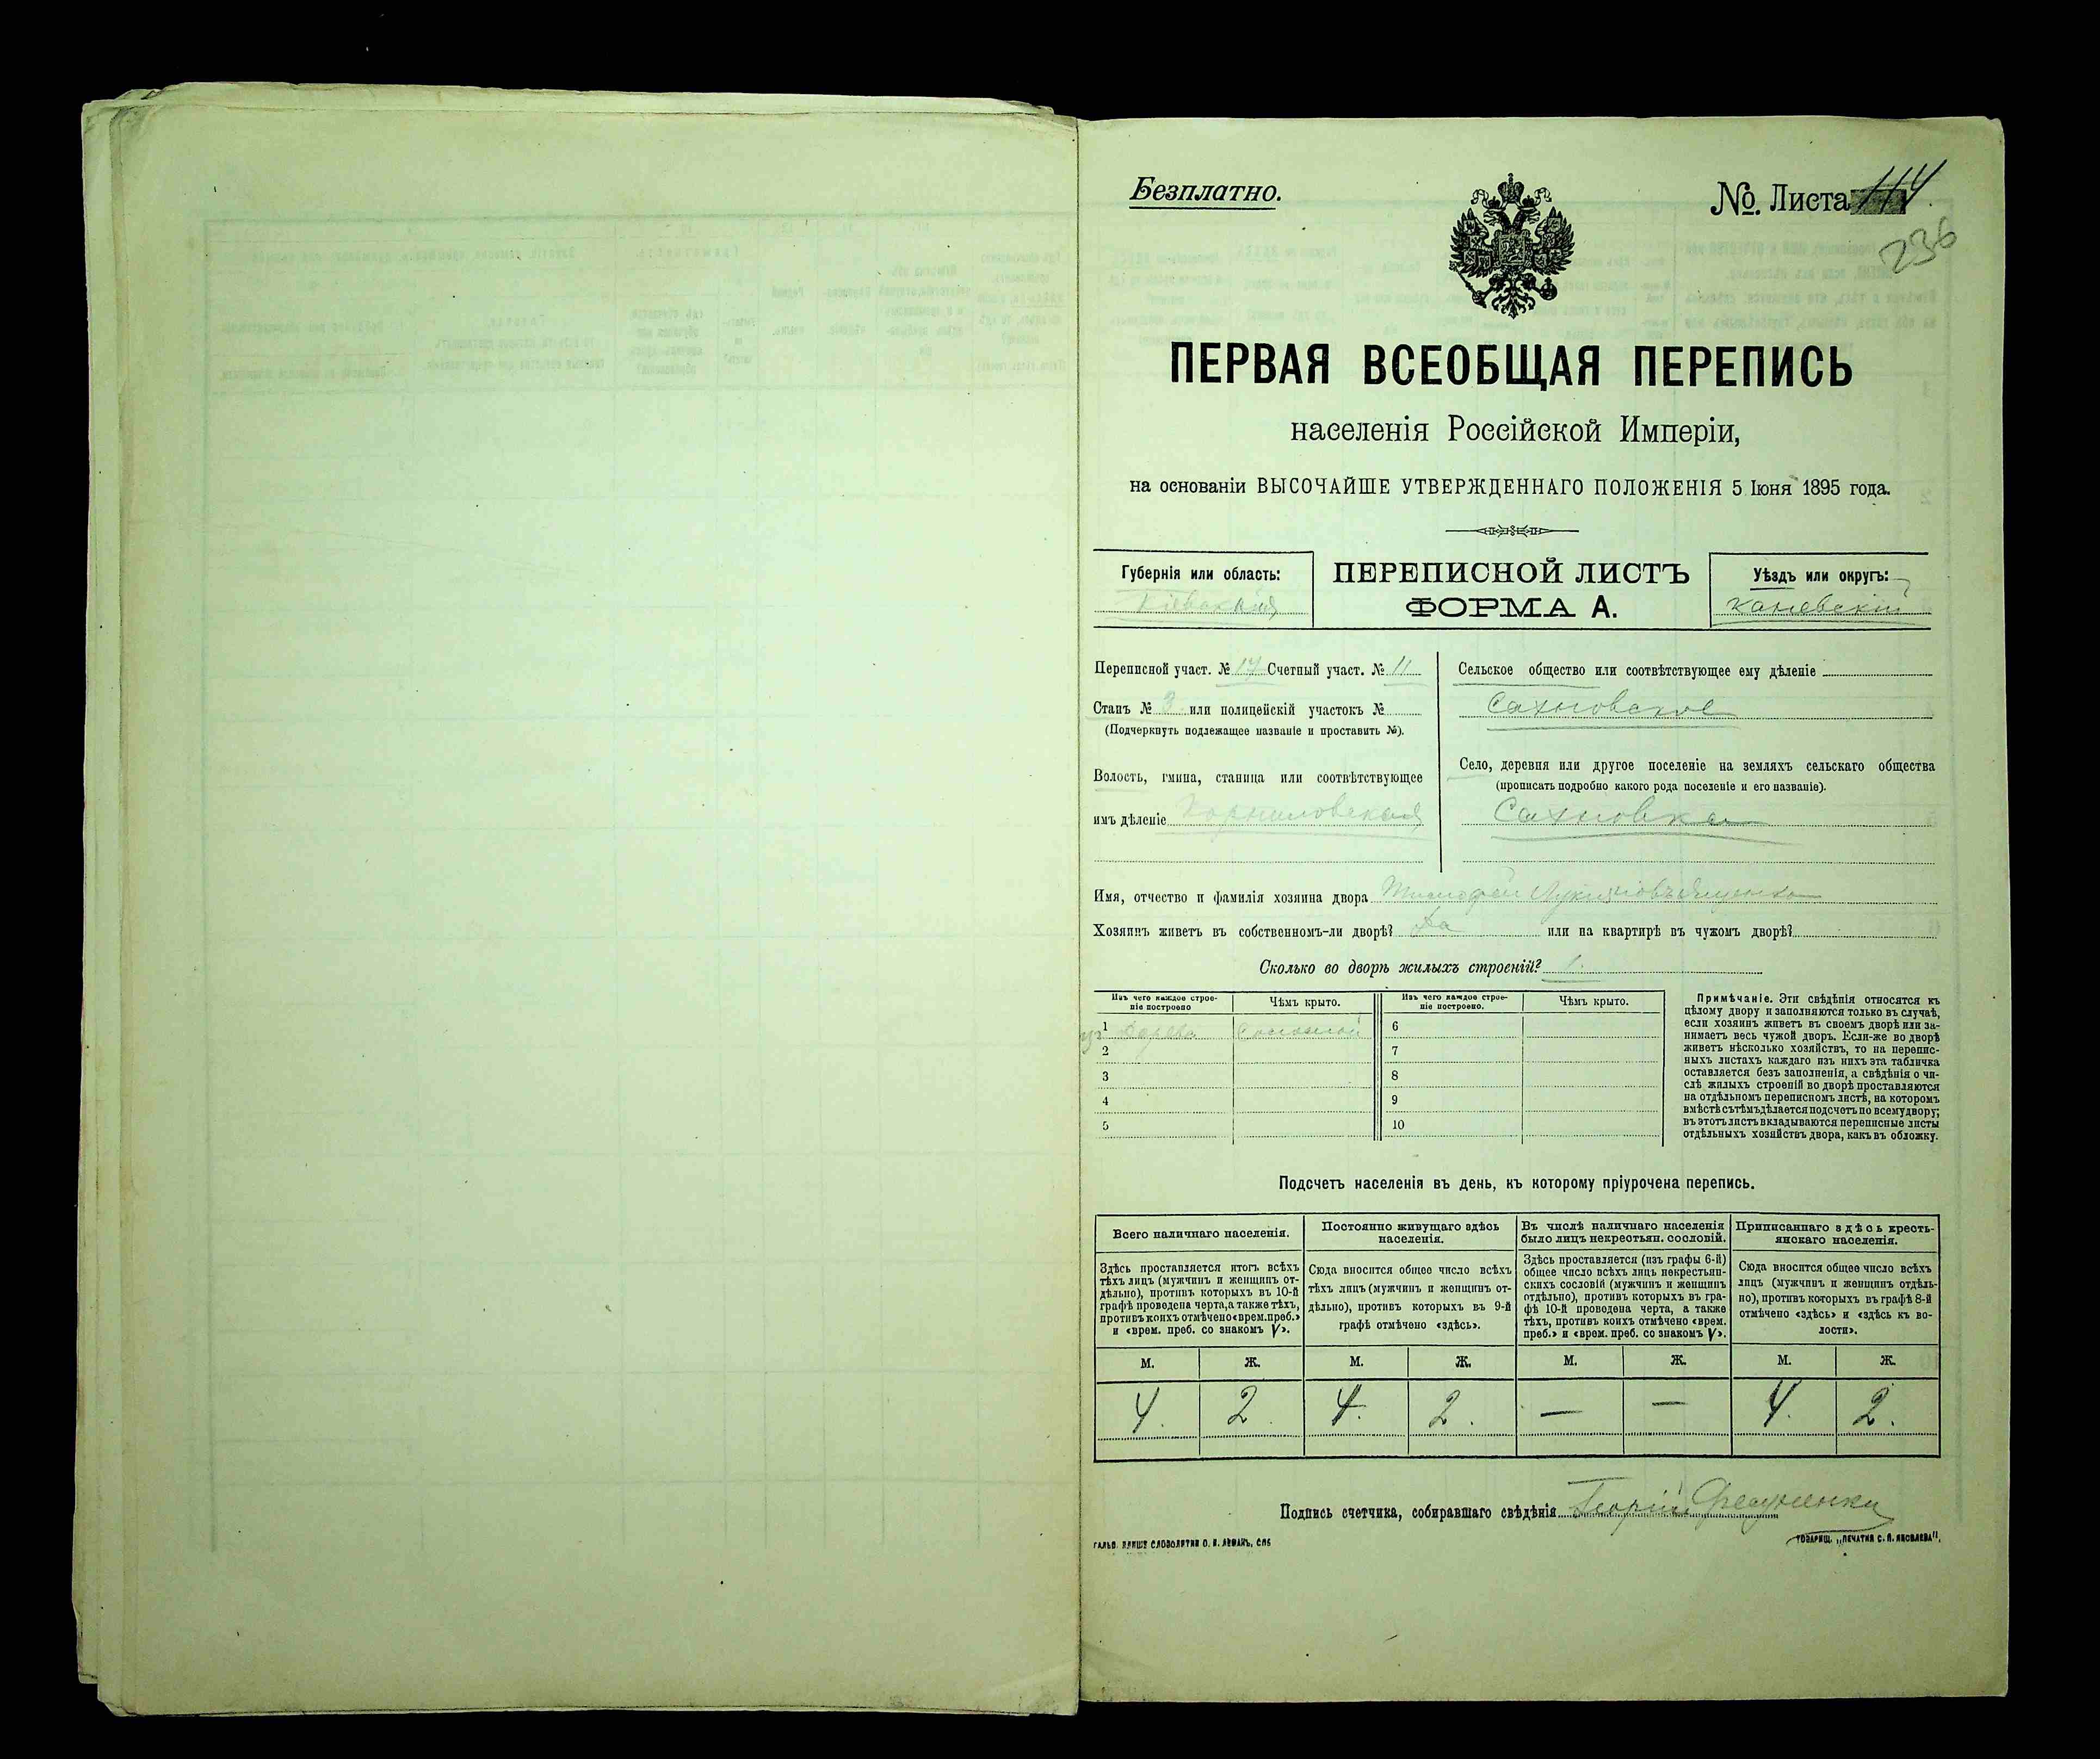 Безплатно.
№. Листа 114.
236
ПЕРВАЯ ВСЕОБЩАЯ ПЕРЕПИСЬ
населенія Россійской Имперіи,
на основаніи ВЫСОЧАЙШЕ УТВЕРЖДЕННАГО ПОЛОЖЕНІЯ 5 Іюня 1895 года.
Губернія или область:
Кіевская
ПЕРЕПИСНОЙ ЛИСТЪ
ФОРМА А.
Уѣздъ или округъ:
Каневскій
Переписной участ. № 17 Счетный участ. № 11
Станъ № 3 или полицейскій участокъ №
(Подчеркнуть подлежащее названіе и проставить №).
Волость, гмина, станица или соотвѣтствующее
имъ дѣленіе Корниловская
Сельское общество или соотвѣтствующее ему дѣленіе
Сахновское
Село, деревня или другое поселеніе на земляхъ сельскаго общества
(прописать подробно какого рода поселеніе и его названіе).
Сахновка
Имя, отчество и фамилія хозяина двора Тимофей
Хозяинъ живетъ въ собственномъ-ли дворѣ? Да или на квартирѣ въ чужомъ дворѣ?
Сколько во дворѣ жилыхъ строеній? 1.
Изъ чего каждое строе-
ніе построено
Чѣмъ крыто.
Изъ чего каждое строе-
ніе построено.
Чѣмъ крыто.
1 изъ дерева Соломой
2
3
4
5
6
7
8
9
10
Примѣчаніе. Эти свѣдѣнія относятся къ
цѣлому двору и заполняются только въ случаѣ,
если хозяинъ живетъ въ своемъ дворѣ или за-
нимаетъ весь чужой дворъ. Если-же во дворѣ
живетъ нѣсколько хозяйствъ, то на перепис-
ныхъ листахъ каждаго изъ нихъ эта табличка
оставляется безъ заполненія, а свѣдѣнія о чи-
слѣ жилыхъ строеній во дворѣ проставляются
на отдѣльномъ переписномъ листѣ, на которомъ
вмѣстѣ съ тѣмъ дѣлается подсчетъ по всему двору;
въ этотъ листъ вкладываются переписные листы
отдѣльныхъ хозяйствъ двора, какъ въ обложку.
Подсчетъ населенія въ день, къ которому пріурочена перепись.
Всего наличнаго населенія.
Здѣсь проставляется итогъ всѣхъ
тѣхъ лицъ (мужчинъ и женщинъ от-
дѣльно), противъ которыхъ въ 10-й
графѣ проведена черта, а также тѣхъ,
противъ коихъ отмѣчено «врем. преб.»
и «врем. преб. со знакомъ V».
Постоянно живущаго здѣсь
населенія.
Сюда вносится общее число всѣхъ
тѣхъ лицъ (мужчинъ и женщинъ от-
дѣльно), противъ которыхъ въ 9-й
графѣ отмѣчено «здѣсь».
Въ числѣ наличнаго населенія
было лицъ некрестьян. сословій.
Здѣсь проставляется (изъ графы 6-й)
общее число всѣхъ лицъ некрестьян-
скихъ сословій (мужчинъ и женщинъ
отдѣльно), противъ которыхъ въ гра-
фѣ 10-й проведена черта, а также
тѣхъ, противъ коихъ отмѣчено «врем.
преб.» и «врем. преб. со знакомъ V».
Приписаннаго здѣсь кресть-
янскаго населенія.
Сюда вносится общее число всѣхъ
лицъ (мужчинъ и женщинъ отдѣль-
но), противъ которыхъ въ графѣ 8-й
отмѣчено «здѣсь» и «здѣсь къ во-
лости».
М. Ж. М. Ж. М. Ж. М. Ж.
4. 2. 4. 2. — — 4. 2.
Подпись счетчика, собиравшаго свѣдѣнія Георгій
ТОВАРИЩ. „ПЕЧАТНЯ С. П. ЯКОВЛЕВА",